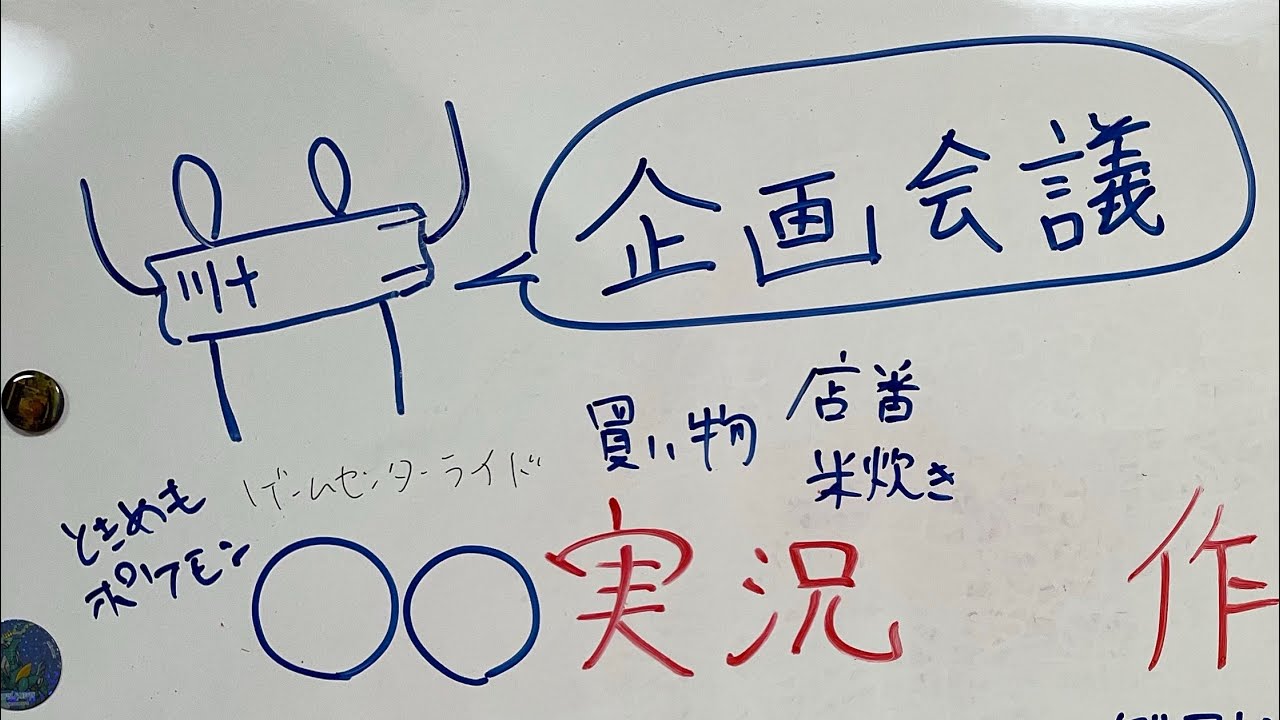 企画会議
買い物
店番
米炊き
ゲームセンターライド
ときめも
ポケモン
〇〇実況
作